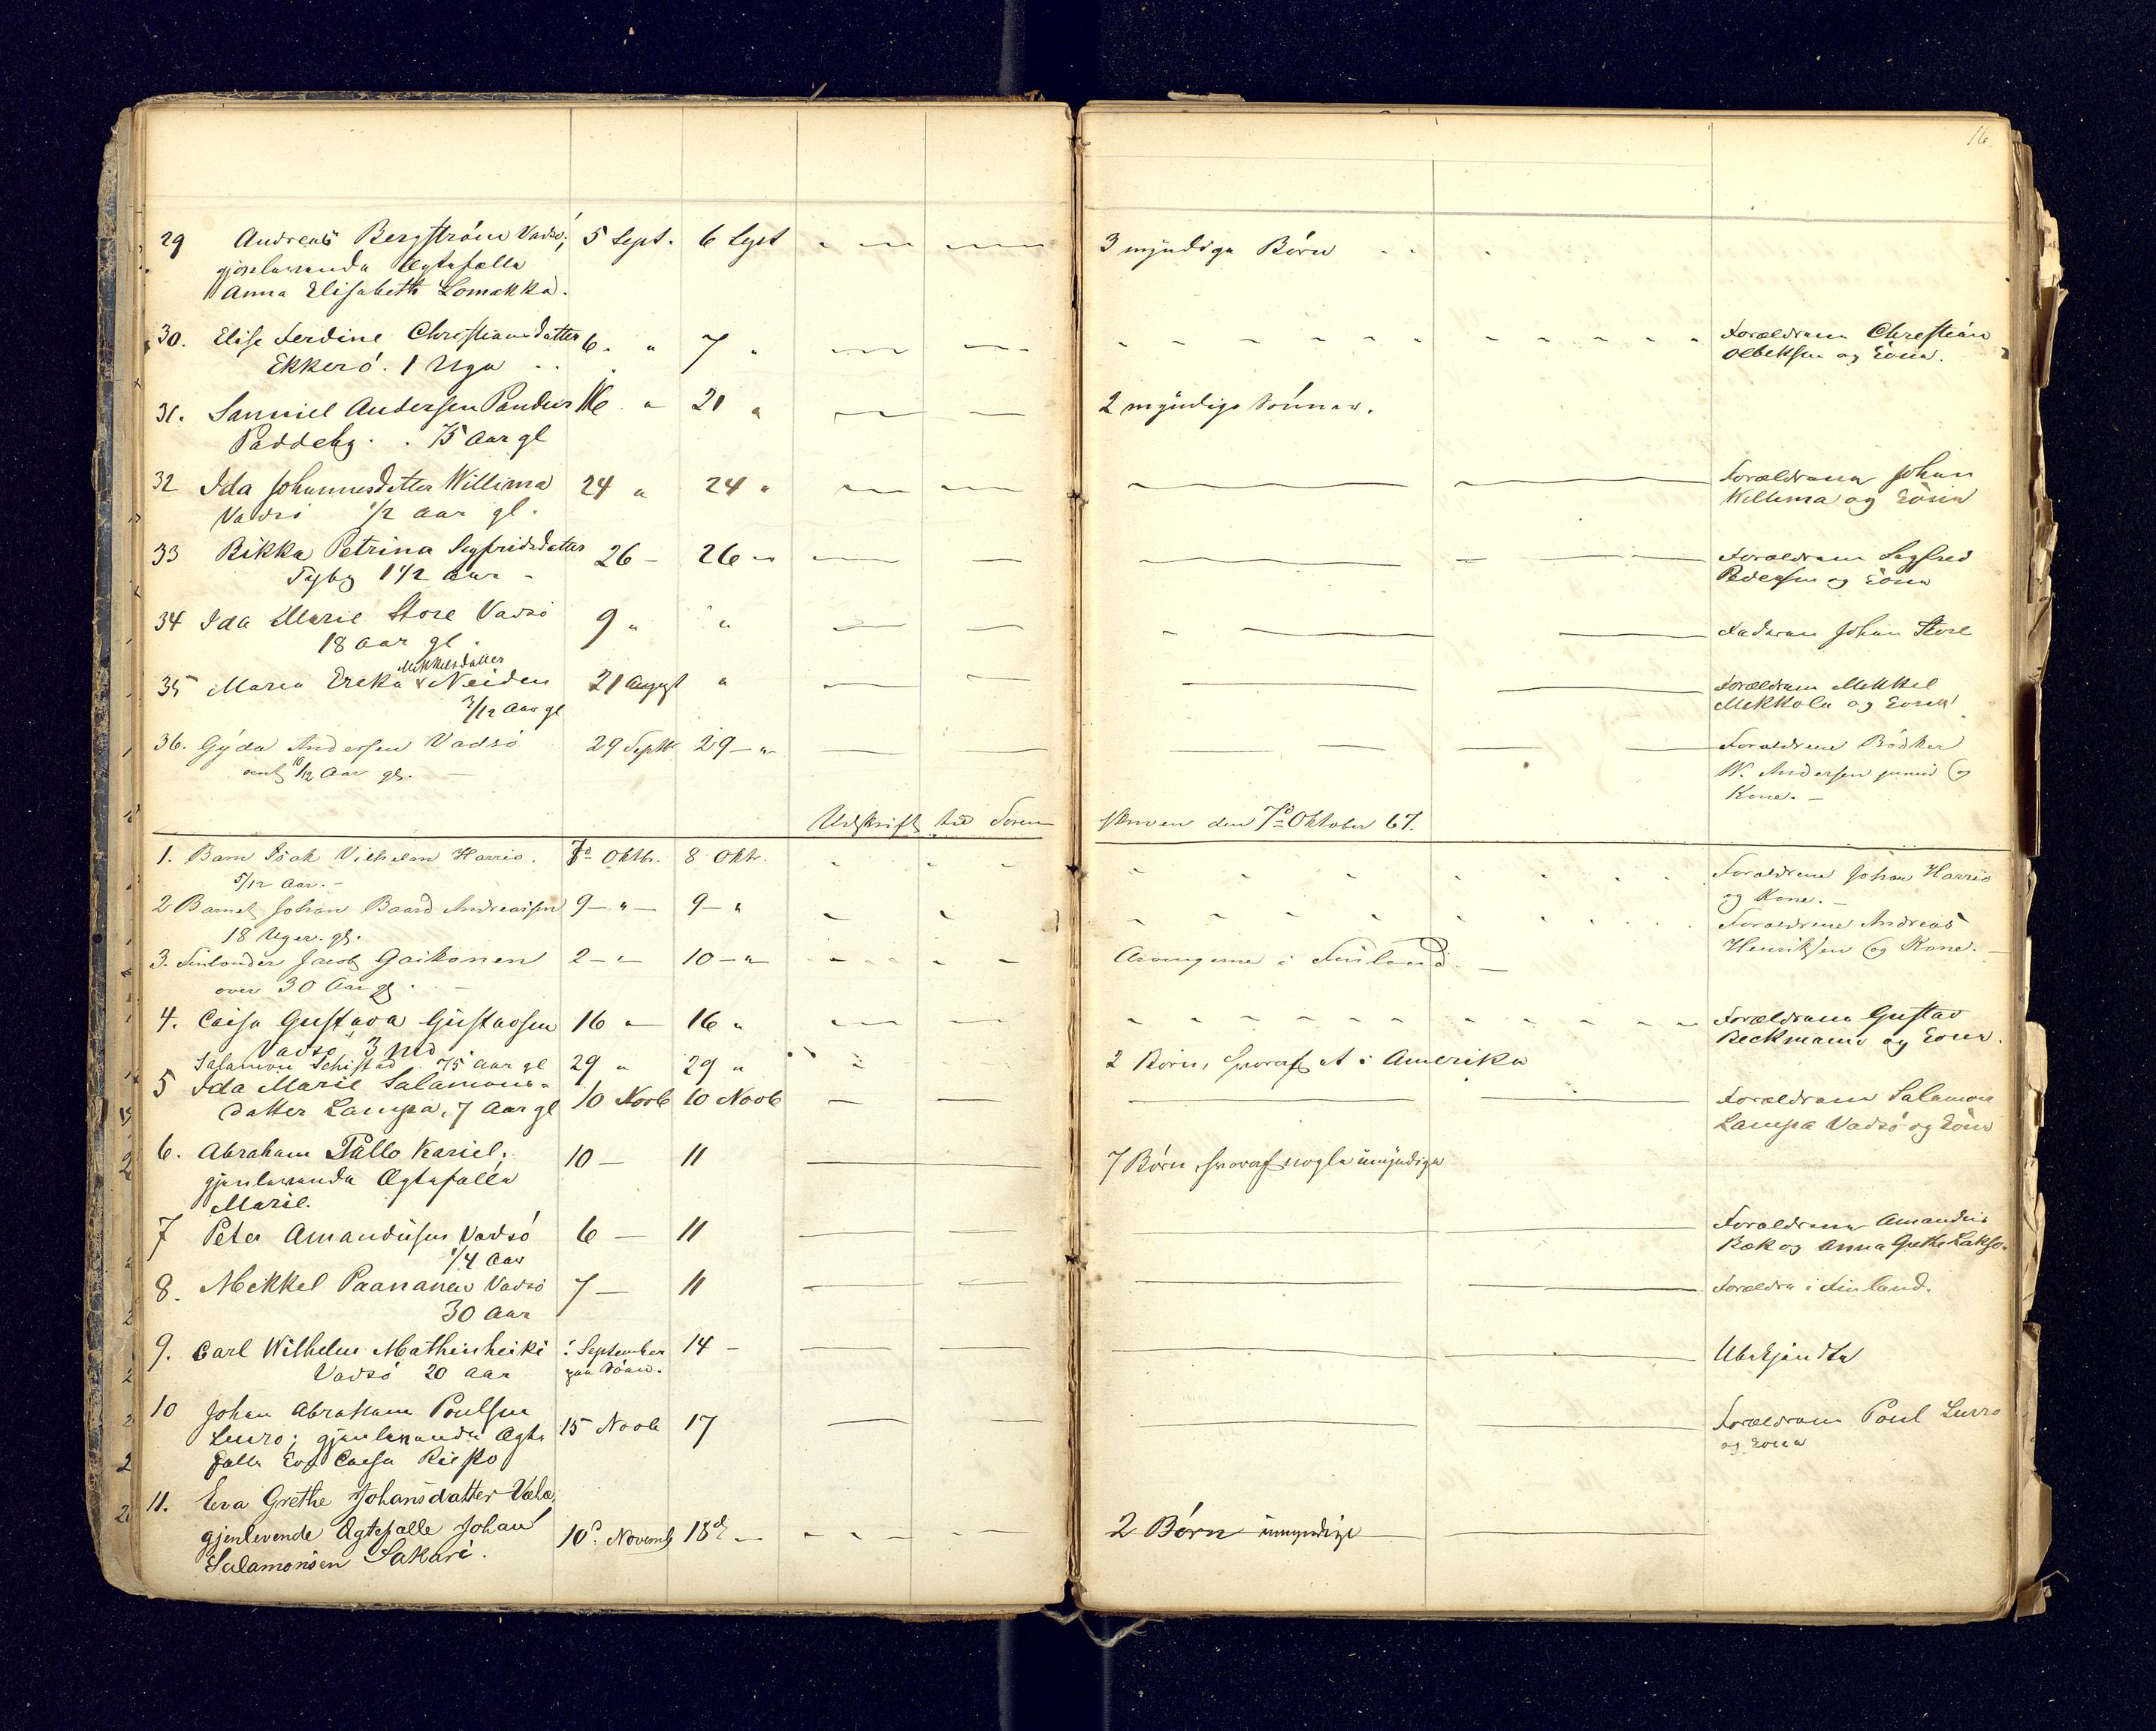 16.
29 Andreas Bergström Vadsö, 5 Sept. 6 Sept 3 myndige Börn
gjenlevende Ægtefælle
Anna Elisabeth Lomakka.
30. Elise Ferdine Christiansdatter 6. " 7 " Forældrene Christian
Ekkerö. 1 Uge Olbeksen og Kone.
31. Samuel Andersen Pandius 16 " 21 " 2 myndige Sönner.
Paddeby. 75 Aar gl
32 Ida Johannesdatter Willima 24 " 24 " Forældrene Johan
Vadsö 1/2 Aar gl. Willima og Kone
33 Rikka Petrina Sigfridsdatter 26 – 26 – Forældrene Sigfred
Tyby 1 1/2 Aar Pedersen og Kone
34 Ida Marie Store Vadsö 9 " " Faderen Johan Store
18 Aar gl.
35 Maria Ereka Mikkelsdatter Neiden 21 August " Forældrene Mikkel
3/12 Aar gl Mikkola og Kone
36. Gyda Andersen Vadsö 29 Septbr 29 – " Forældrene Bödker
10/12 Aar gl. W. Andersen junior og
Kone. –
Udskrift til Sorenskriveren den 7de Oktober 67.
1. Barn Isak Vilhelm Harrio. 7de Oktbr. 8 Oktr. Forældrene Johan Harrio
5/12 Aar. – og Kone. –
2 Barnet Johan Baard Andreassen 9 – " – 9 – " Forældrene Andreas
18 Uger gl. Henriksen og Kone. –
3. Finlænder Jacob Gaikonen 2 – " 10 – " Arvingerne i Finland. –
over 30 Aar gl.
4. Caisa Gustava Gustavsen 16 " 16 " Forældrene Gustav
Vadsö 3 Md Beckmann og Kone.
Salamon Schistad 75 Aar gl 29 " 29 " 2 Börn, hvoraf et i Amerika
5 Ida Marie Salamons- 10 Novb 10 Novb Forældrene Salamon
datter Lampa, 7 Aar gl Lampa Vadsö og Kone
6. Abraham Pallo Kariel, 10 – 11 7 Börn, hvoraf nogle umyndige
gjenlevende Ægtefælle
Marie.
7 Peter Amandusen Vadsö 6 – 11 Forældrene Amandus
1/4 Aar Bæk og Anna Grethe Lakso.
8. Mekkel Paananen Vadsö 7 – 11 Forældre i Finland.
30 Aar
9. Carl Wilhelm Mathinheiki i September 14 – Ubekjendte
Vadsö 20 Aar paa Söen.
10 Johan Abraham Poulsen 15 Novb 17 Forældrene Poul Lurro
Lurro; gjenlevende Ægte og Kone
fælle Eva Caisa Riesto
11. Eva Grethe Johansdatter
gjenlevende Ægtefælle Johan 10de Novemb 18de – 2 Börn umyndige
Salamonsen Sakari.